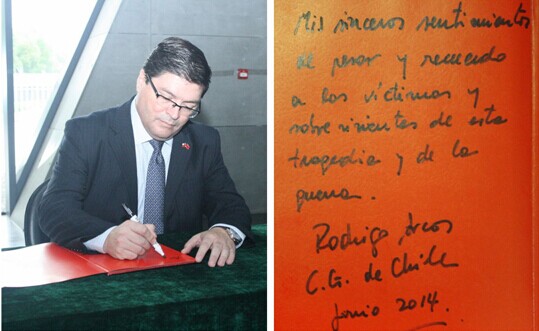 Mis sinceros sentimientos
de pesar y recuerdo
a las víctimas y
sobrevivientes de esta
tragedia y de la
guerra.
Rodrigo Arcos
C.G. de Chile
Junio 2014.